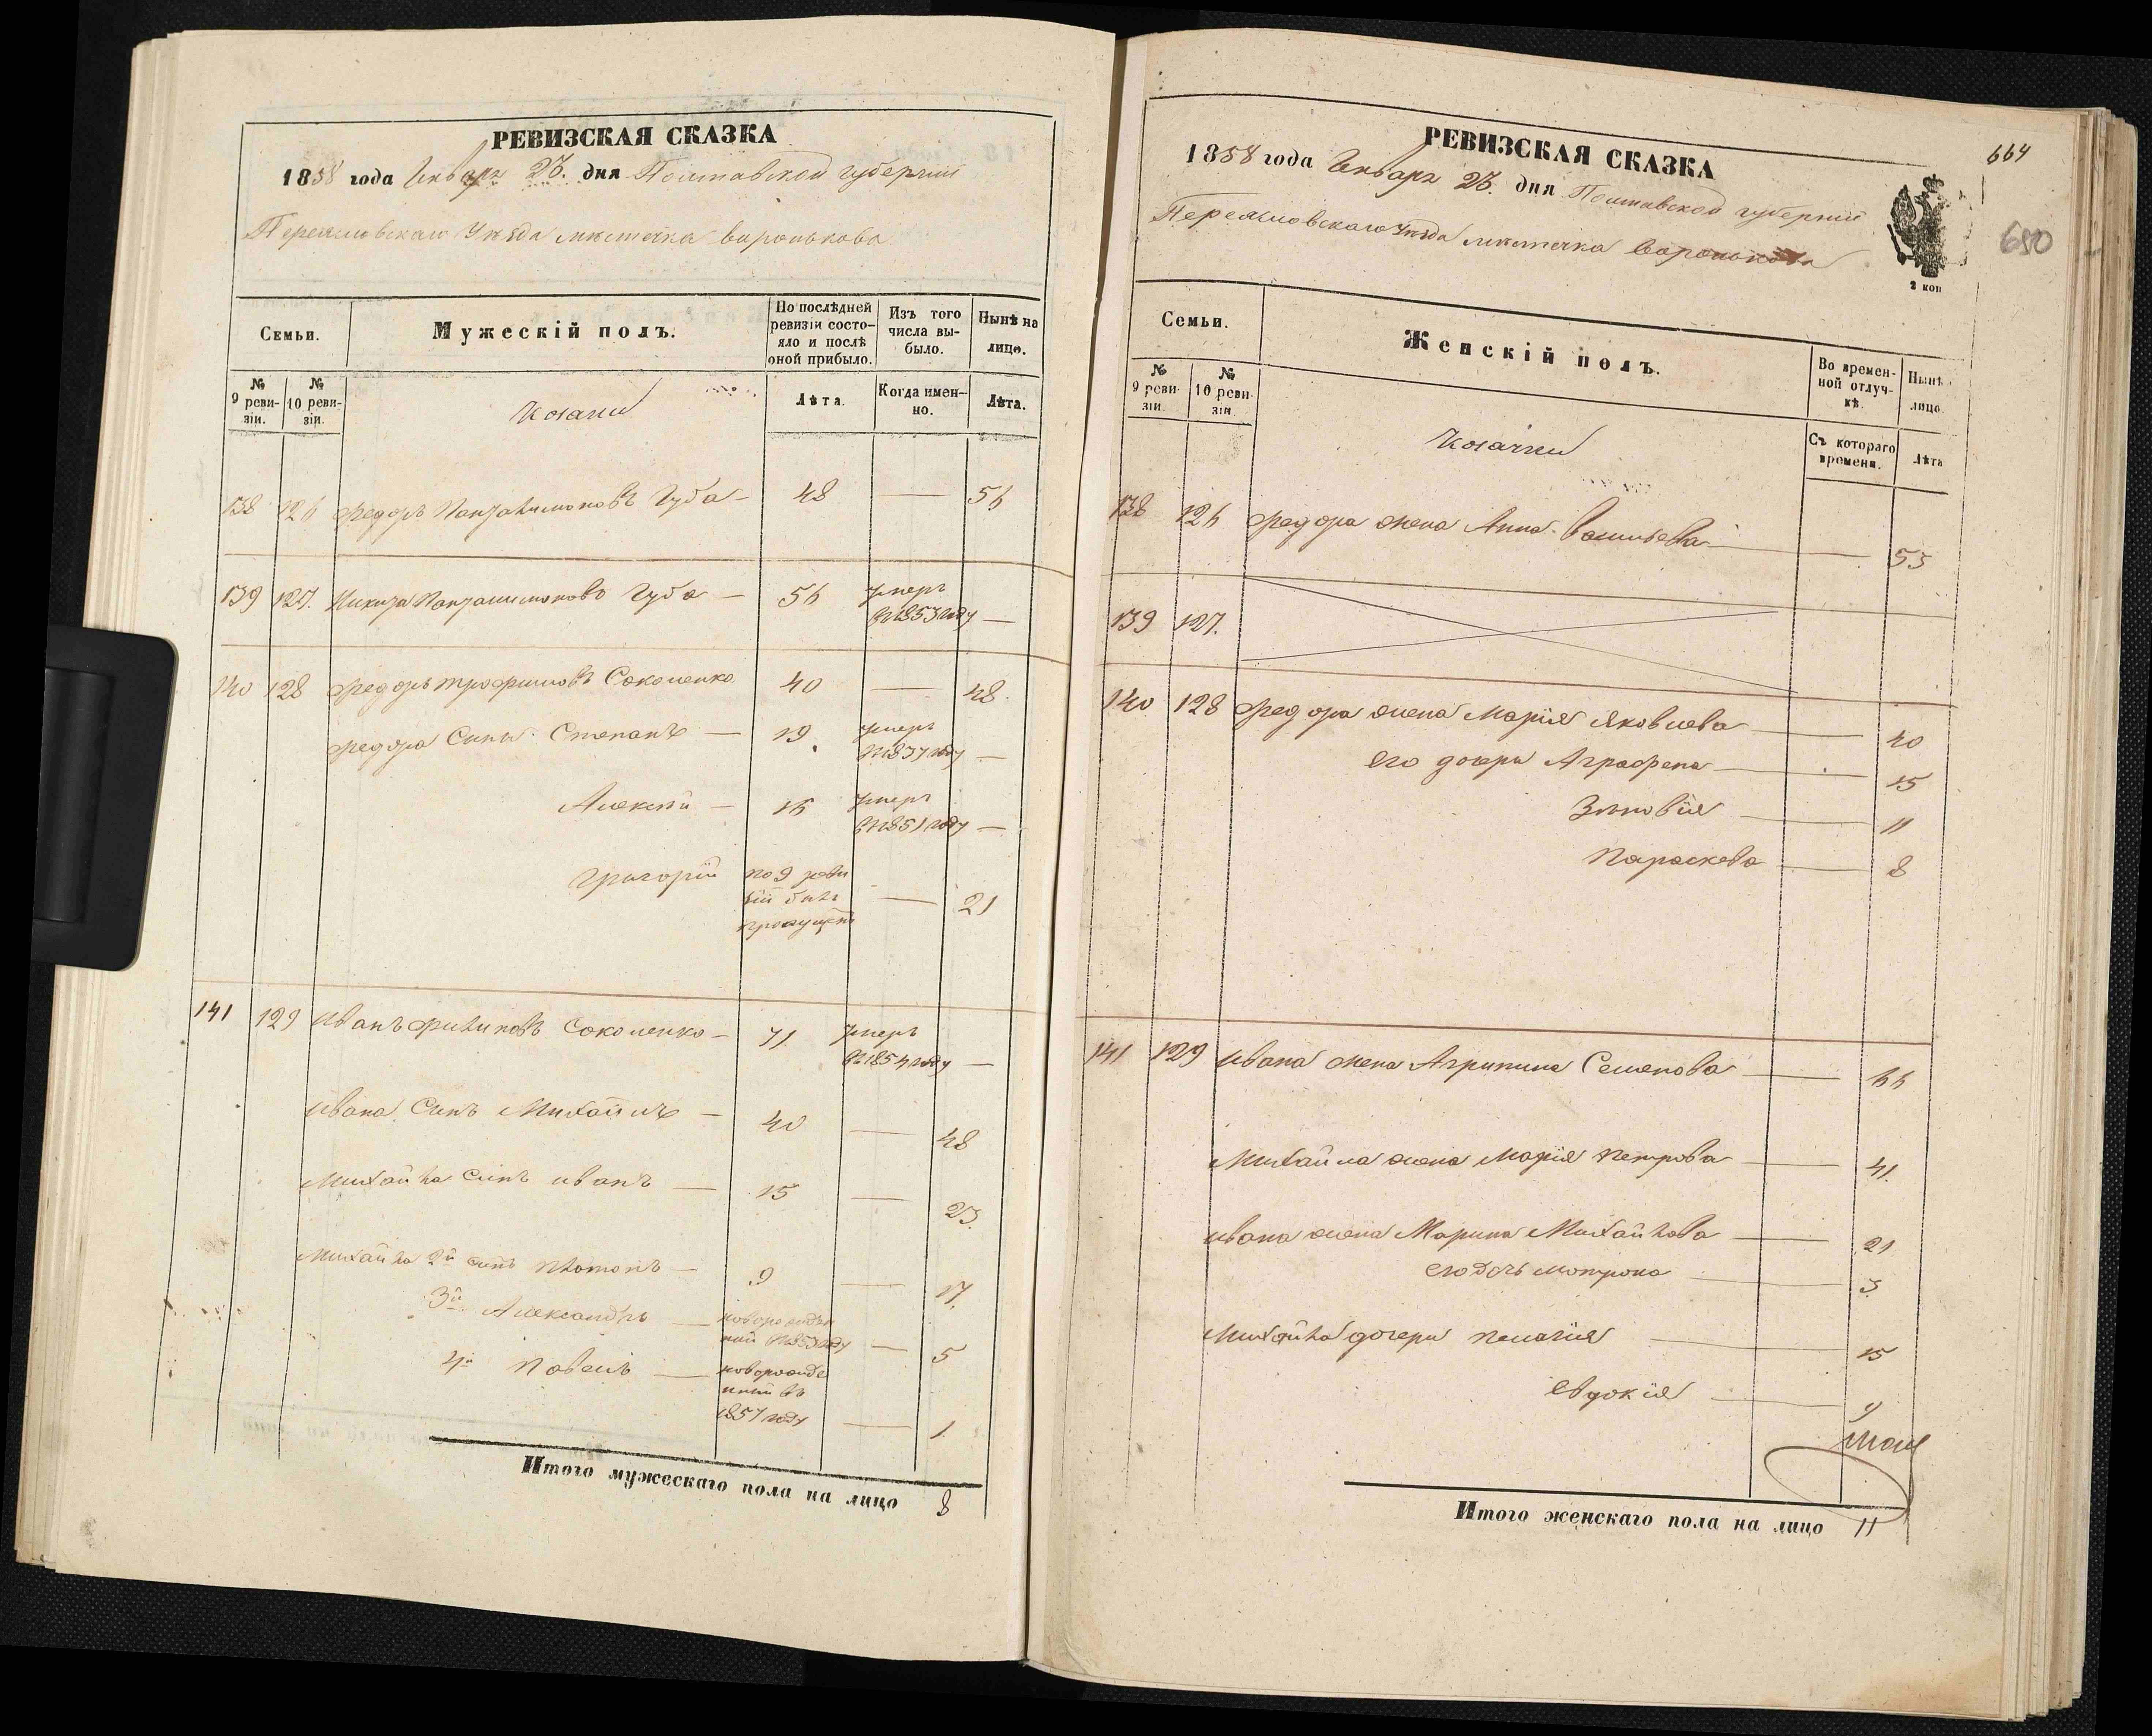 РЕВИЗСКАЯ СКАЗКА
1858 года Января 23. дня Полтавской губернии
Переяславскаго Уѣзда мѣстечка Воронькова
Семьи.
Мужескій полъ.
По послѣдней ревизіи состо-
яло и послѣ
оной прибыло.
Изъ того
числа вы-
было.
Нынѣ на
лицо.
№ 9 реви-
зіи.
№ 10 реви-
зіи.
Козаки
Лѣта.
Когда имен-
но.
Лѣта.
138 126 Федоръ Пантелимоновъ Губа — 48 — 56
139 127. Никита Пантелимоновъ Губа — 56 умеръ
въ 1853 году —
140 128 Федоръ Трофимовъ Соколенко 40 — 48.
Федора Сины Степанъ — 19. умеръ
въ 1857 году —
Алексѣй — 16 умеръ
въ 1851 году —
Григорій по 9 реви
зіи билъ
пропущенъ — 21
141 129 Иванъ Филиповъ Соколенко — 71 умеръ
въ 1854 году —
Ивана Синъ Михайлъ — 40 — 48
Михайла синъ Иванъ — 15 — 23.
Михайла 2й синъ Платонъ — 9 — 17.
3й Александръ — новорожден
ний въ 1853 году — 5
4й Павелъ — новорожде
нний въ
1857 году — 1.
Итого мужескаго пола на лицо 8
664
650
РЕВИЗСКАЯ СКАЗКА
1858 года Января 23. дня Полтавской губернии
Переяславскаго Уѣзда мѣстечка Воронькова
2 коп
Семьи.
Женскій полъ.
Во времен-
ной отлуч-
кѣ.
Нынѣ
лицо.
№ 9 реви-
зіи.
№ 10 реви-
зіи.
Козачки
Съ котораго
времени.
Лѣта
138 126 Федора жена Анна Васильева — 53
139 127.
140 128 Федора жена Марія Яковлева — 40
его дочери Аграфена — 15
Зѣновія — 11
Параскева — 8
141 129 Ивана жена Агрипина Семенова — 66
Михайла жена Марія Петрова — 41.
Ивана жена Марина Михайлова — 21
его дочь Мотрона — 3.
Михайла дочери Пелагія — 15
Евдокія — 9
Итого женскаго пола на лицо 11